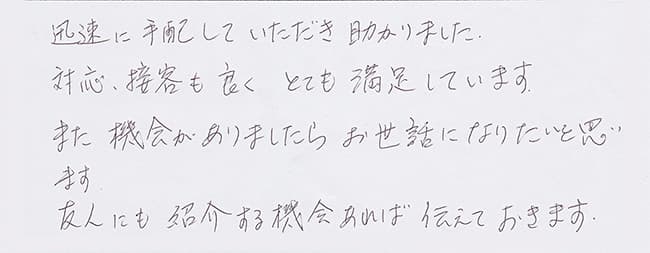 迅速に手配していただき助かりました.
対応、接客も良く とても 満足しています.
また 機会がありましたら お世話になりたいと思い
ます.
友人にも 紹介する機会あれば 伝えて おきます.